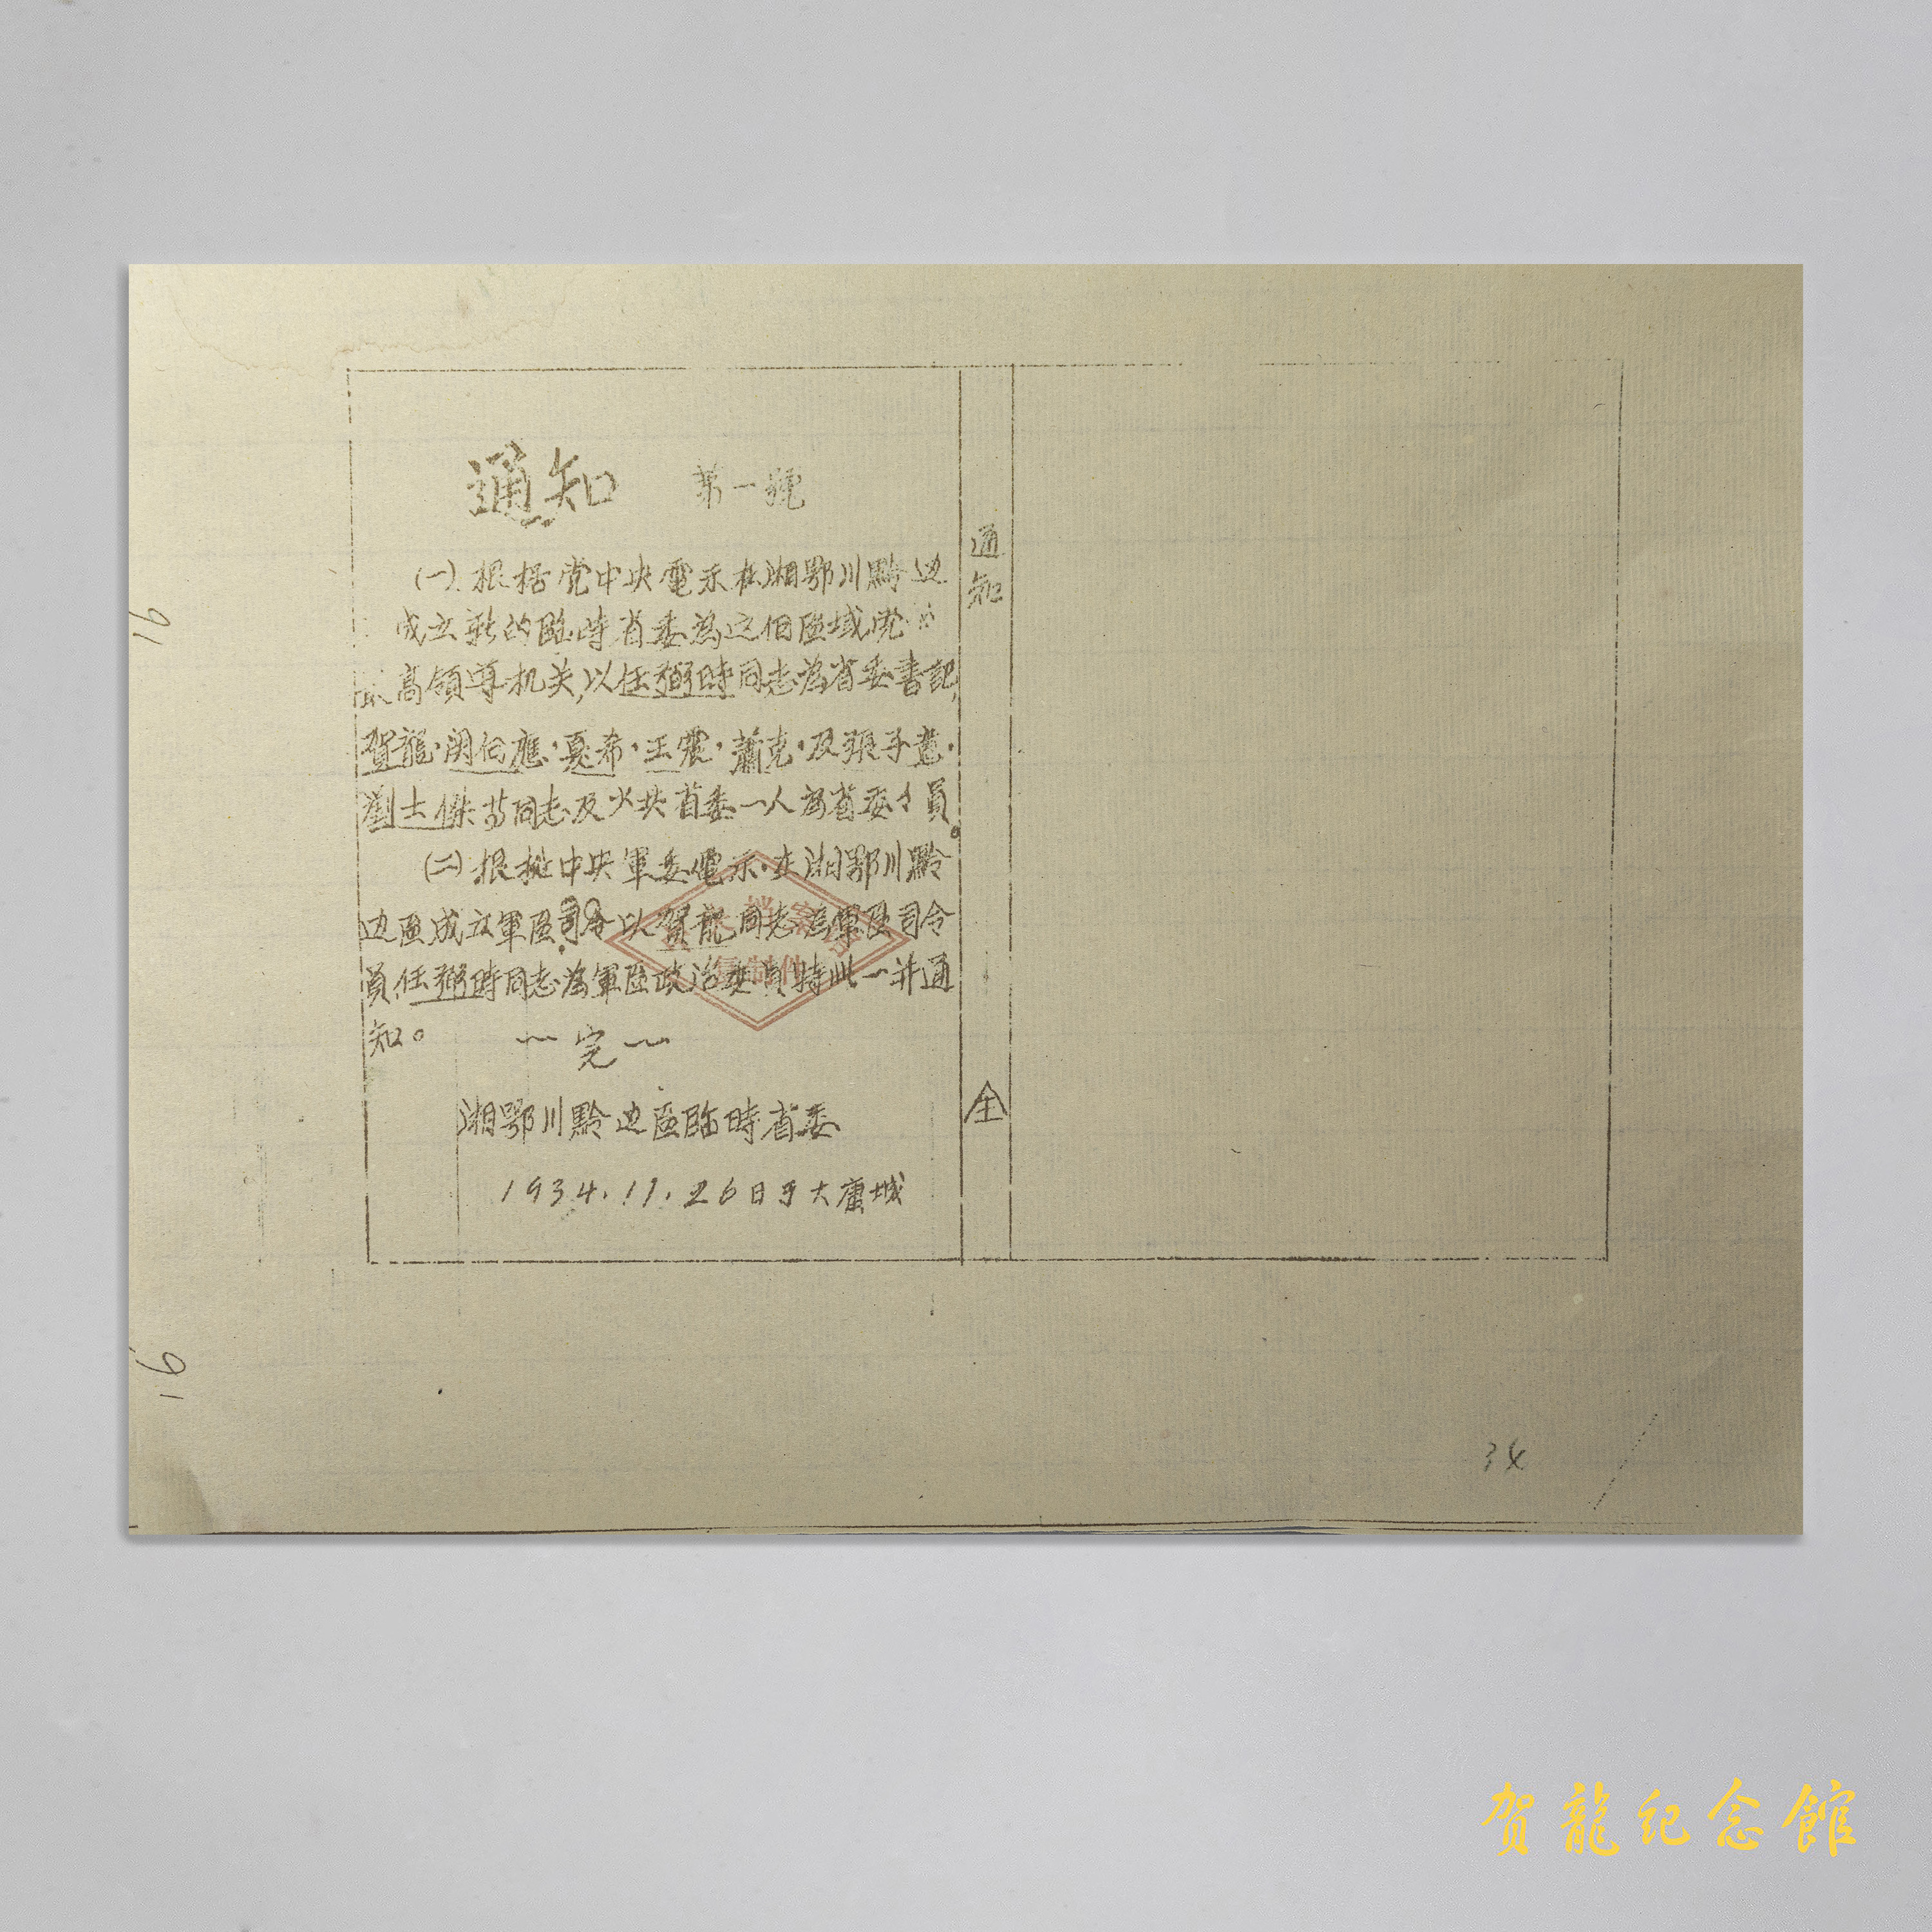 通知 第一號
(一).根据党中央電示在湘鄂川黔边
成立新的臨時省委為这個區域党的
最高領導机关,以任弼時同志為省委書記,
賀龍·関向應·夏希·王震·蕭克·及張子意·
劉士傑等同志及少共省委一人為省委委員。
(二).根據中央軍委電示·在湘鄂川黔
边區成立軍區司令以賀龍同志為軍區司令
員任弼時同志為軍區政治委員特此一并通
知。
完
湘鄂川黔边區臨時省委
1934.11.26日于大庸城
通知
全
档案館
復制件
91
91
34
賀龍紀念館